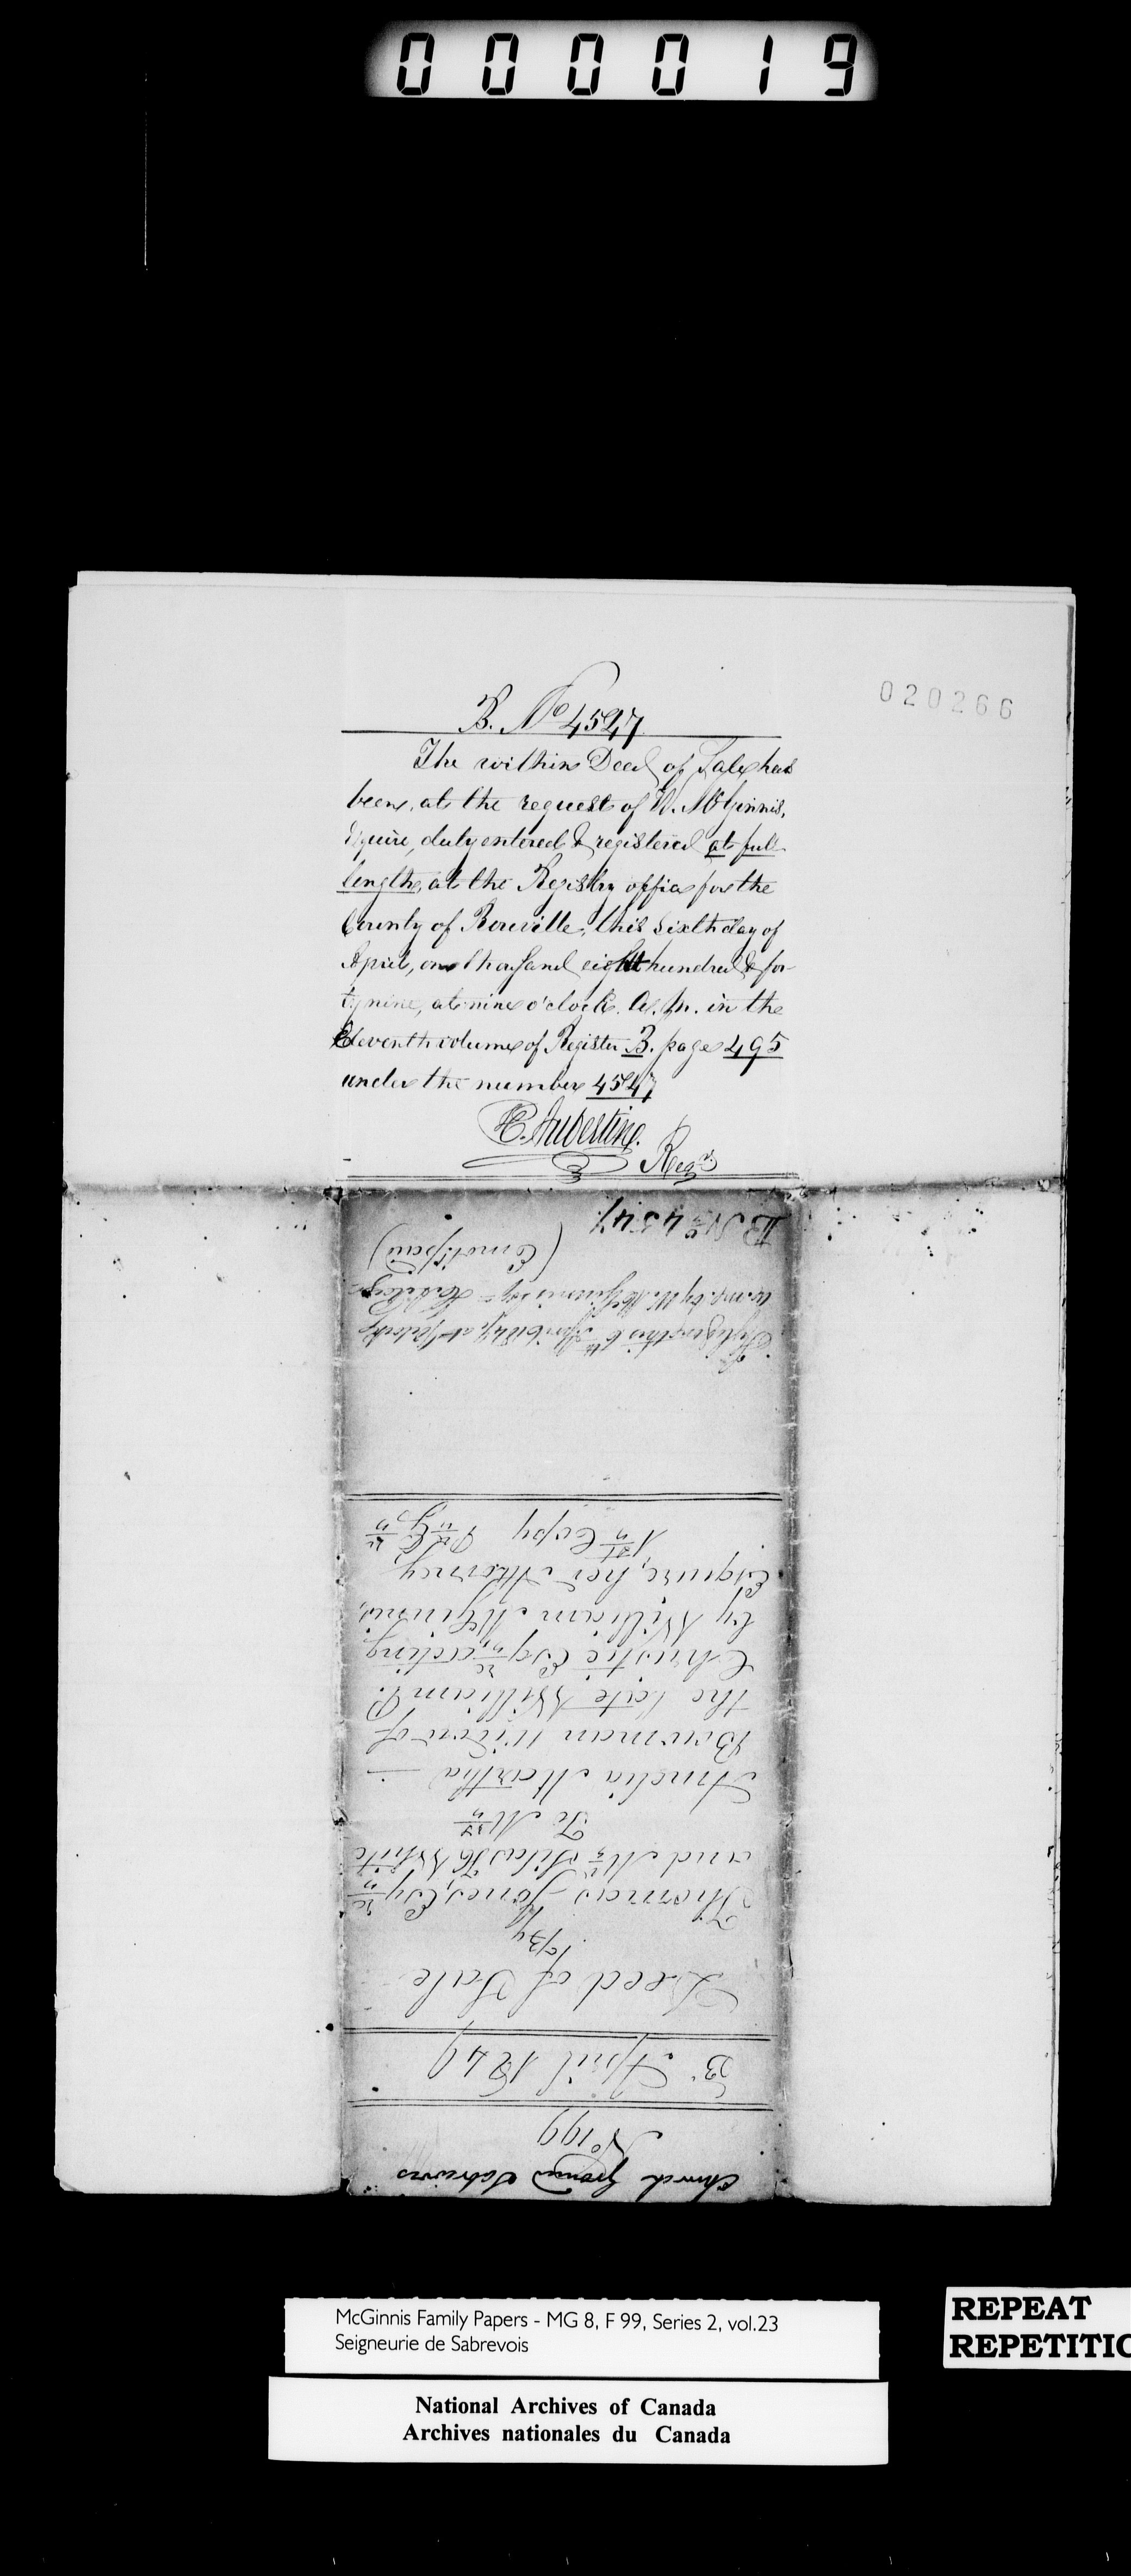 000019
020266
B. No 4547
The within Deed of Sale has
been, at the request of W. McGinnis,
Esquire, duly entered & registered at full
length, at the Registry office for the
County of Rouville, this sixth day of
April, one thousand eight hundred & for-
ty nine, at nine o'clock. A. M. in the
Eleventh volume of Register B. page 495
under the number 4547
Regr.
Church Ground Sabrevois
No 199
3d April 1849
Deed of Sale
by
Thomas Jones, Esqre
and Mr Silas H. White
To Mrs
Amelia Martha
Bowman widow of
the late William P.
Christie Esqre, acting
by William McGinnis,
Esquire, her Attorney
1st Copy
this 6th April 1849, at 9 o'clock
a.m. by W. McGinnis Esqr
B No 4547
McGinnis Family Papers - MG 8, F 99, Series 2, vol.23
Seigneurie de Sabrevois
REPEAT
REPETITIO
National Archives of Canada
Archives nationales du Canada